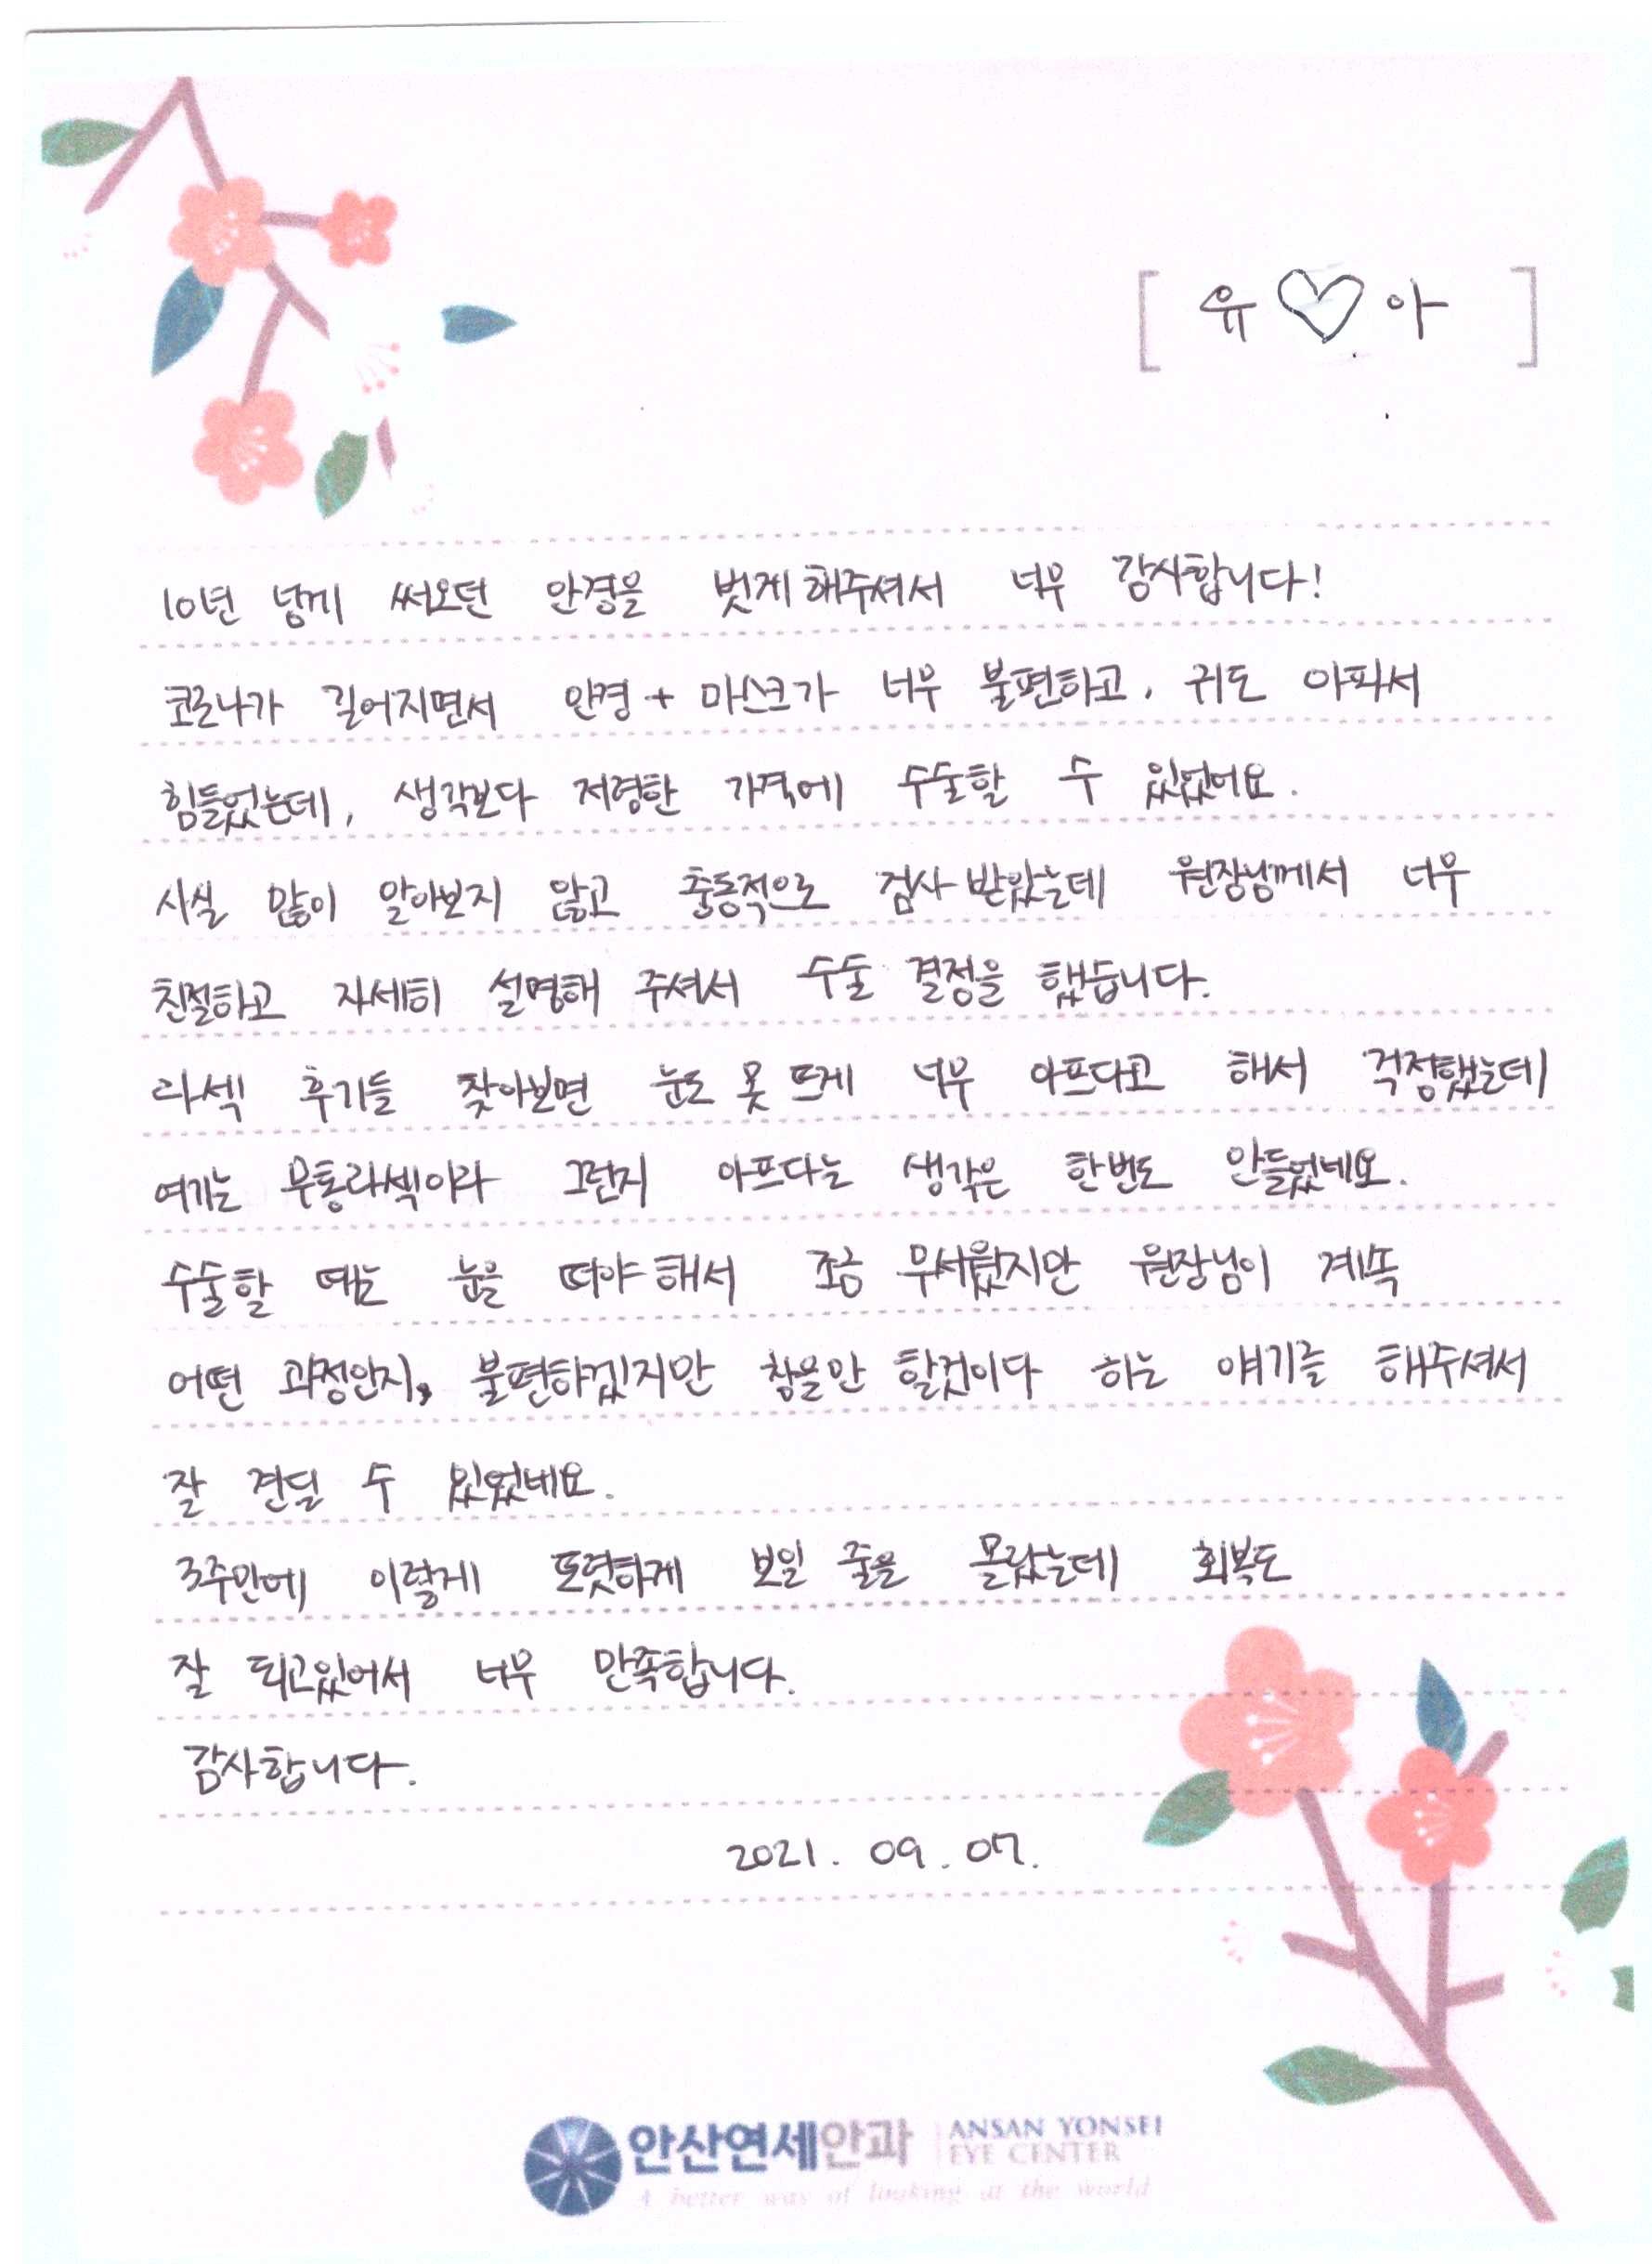 [ 유♡아 ]
10년 넘게 써오던 안경을 벗게해주셔서 너무 감사합니다!
코로나가 길어지면서 안경 + 마스크가 너무 불편하고, 귀도 아파서
힘들었는데, 생각보다 저렴한 가격에 수술할 수 있었어요.
사실 많이 알아보지 않고 충동적으로 검사 받았는데 원장님께서 너무
친절하고 자세히 설명해 주셔서 수술 결정을 했습니다.
라섹 후기들 찾아보면 눈도 못 뜨게 너무 아프다고 해서 걱정했는데
여기는 무통라섹이라 그런지 아프다는 생각은 한번도 안들었네요.
수술할 때는 눈을 떠야해서 조금 무서웠지만 원장님이 계속
어떤 과정인지, 불편하겠지만 참을만 할것이다 하는 얘기를 해주셔서
잘 견딜 수 있었네요.
3주만에 이렇게 또렷하게 보일 줄을 몰랐는데 회복도
잘 되고있어서 너무 만족합니다.
감사합니다.
2021. 09. 07.
안산연세안과 ANSAN YONSEI
EYE CENTER
A better way of looking at the world